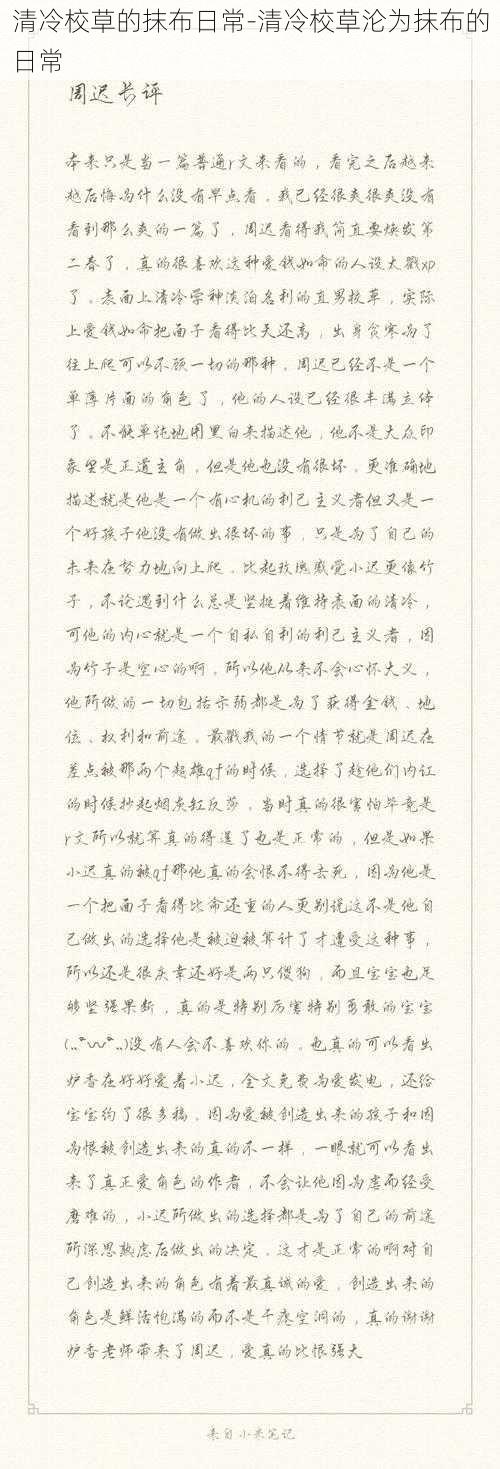 清冷校草的抹布日常-清冷校草沦为抹布的
日常
周迟长评
本来只是当一篇普通r文来看的，看完之后越来
越后悔为什么没有早点看。我已经很爽很爽没有
看到那么爽的一篇了，周迟看得我简直要焕发第
二春了，真的很喜欢这种爱钱如命的人设大戳xp
了。表面上清冷学神淡泊名利的直男校草，实际
上爱钱如命把面子看得比天还高，出身贫寒为了
往上爬可以不顾一切的那种。周迟已经不是一个
单薄片面的角色了，他的人设已经很丰满立体
了。不能单纯地用黑白来描述他，他不是大众印
象里是正道主角，但是他也没有很坏。更准确地
描述就是他是一个有心机的利己主义者但又是一
个好孩子他没有做出很坏的事，只是为了自己的
未来在努力地向上爬。比起玫瑰感觉小迟更像竹
子，不论遇到什么总是坚挺着维持表面的清冷，
可他的内心就是一个自私自利的利己主义者，因
为竹子是空心的啊。所以他从来不会心怀大义，
他所做的一切包括示弱都是为了获得金钱、地
位、权利和前途。最戳我的一个情节就是周迟在
差点被那两个超雄qj的时候，选择了趁他们内讧
的时候抄起烟灰缸反莎。当时真的很害怕毕竟是
r文所以就算真的得逞了也是正常的，但是如果
小迟真的被qj那他真的会恨不得去死，因为他是
一个把面子看得比命还重的人更别说这不是他自
己做出的选择他是被迫被算计了才遭受这种事，
所以还是很庆幸还好是两只傻狗，而且宝宝也足
够坚强果断，真的是特别厉害特别勇敢的宝宝
(„ᵕᴗᵕ„)没有人会不喜欢你的。也真的可以看出
炉香在好好爱着小迟，全文免费为爱发电，还给
宝宝约了很多稿。因为爱被创造出来的孩子和因
为恨被创造出来的真的不一样，一眼就可以看出
来了真正爱角色的作者，不会让他因为虐而经受
磨难的，小迟所做出的选择都是为了自己的前途
所深思熟虑后做出的决定。这才是正常的啊对自
己创造出来的角色有着最真诚的爱，创造出来的
角色是鲜活饱满的而不是干瘪空洞的，真的谢谢
炉香老师带来了周迟，爱真的比恨强大
来自小米笔记